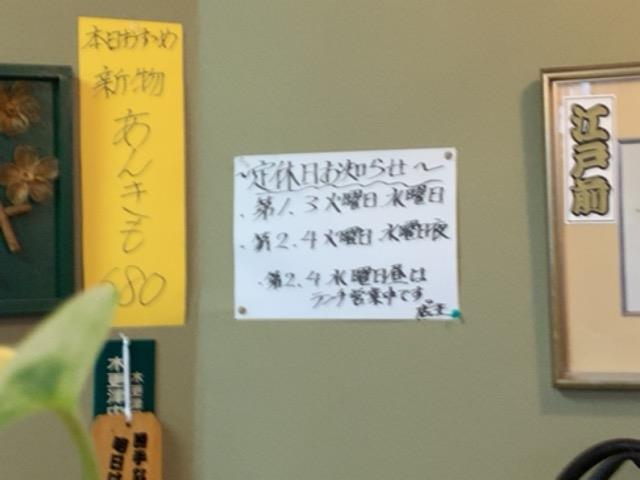 本日おすすめ
新物
あんきも
680
~定休日お知らせ~
・第1.3火曜日 水曜日
・第2.4火曜日 水曜日夜
・第2.4水曜日昼は
ランチ営業中です。
店主
江戸前
木更津
木更津
勝手な
明日は